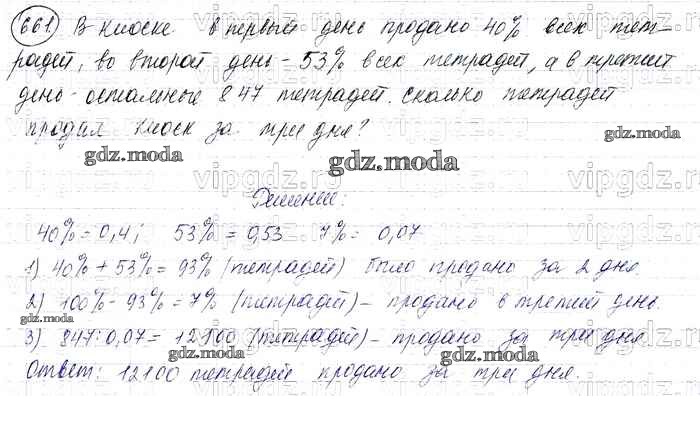 661 В киоске в первый день продано 40% всех тет-
радей, во второй день - 53% всех тетрадей, а в третий
день - остальные 847 тетрадей. Сколько тетрадей
продал киоск за три дня?
gdz.moda
gdz.moda
gdz.moda
Решение:
40% = 0,4; 53% = 0,53 7% = 0,07
1) 40% + 53% = 93% (тетрадей) было продано за 2 дня.
2) 100% - 93% = 7% (тетрадей) - продано в третий день.
gdz.moda
gdz.moda
3) 847 : 0,07 = 12100 (тетрадей) - продано за три дня.
gdz.moda
gdz.moda
Ответ: 12100 тетрадей продано за три дня.